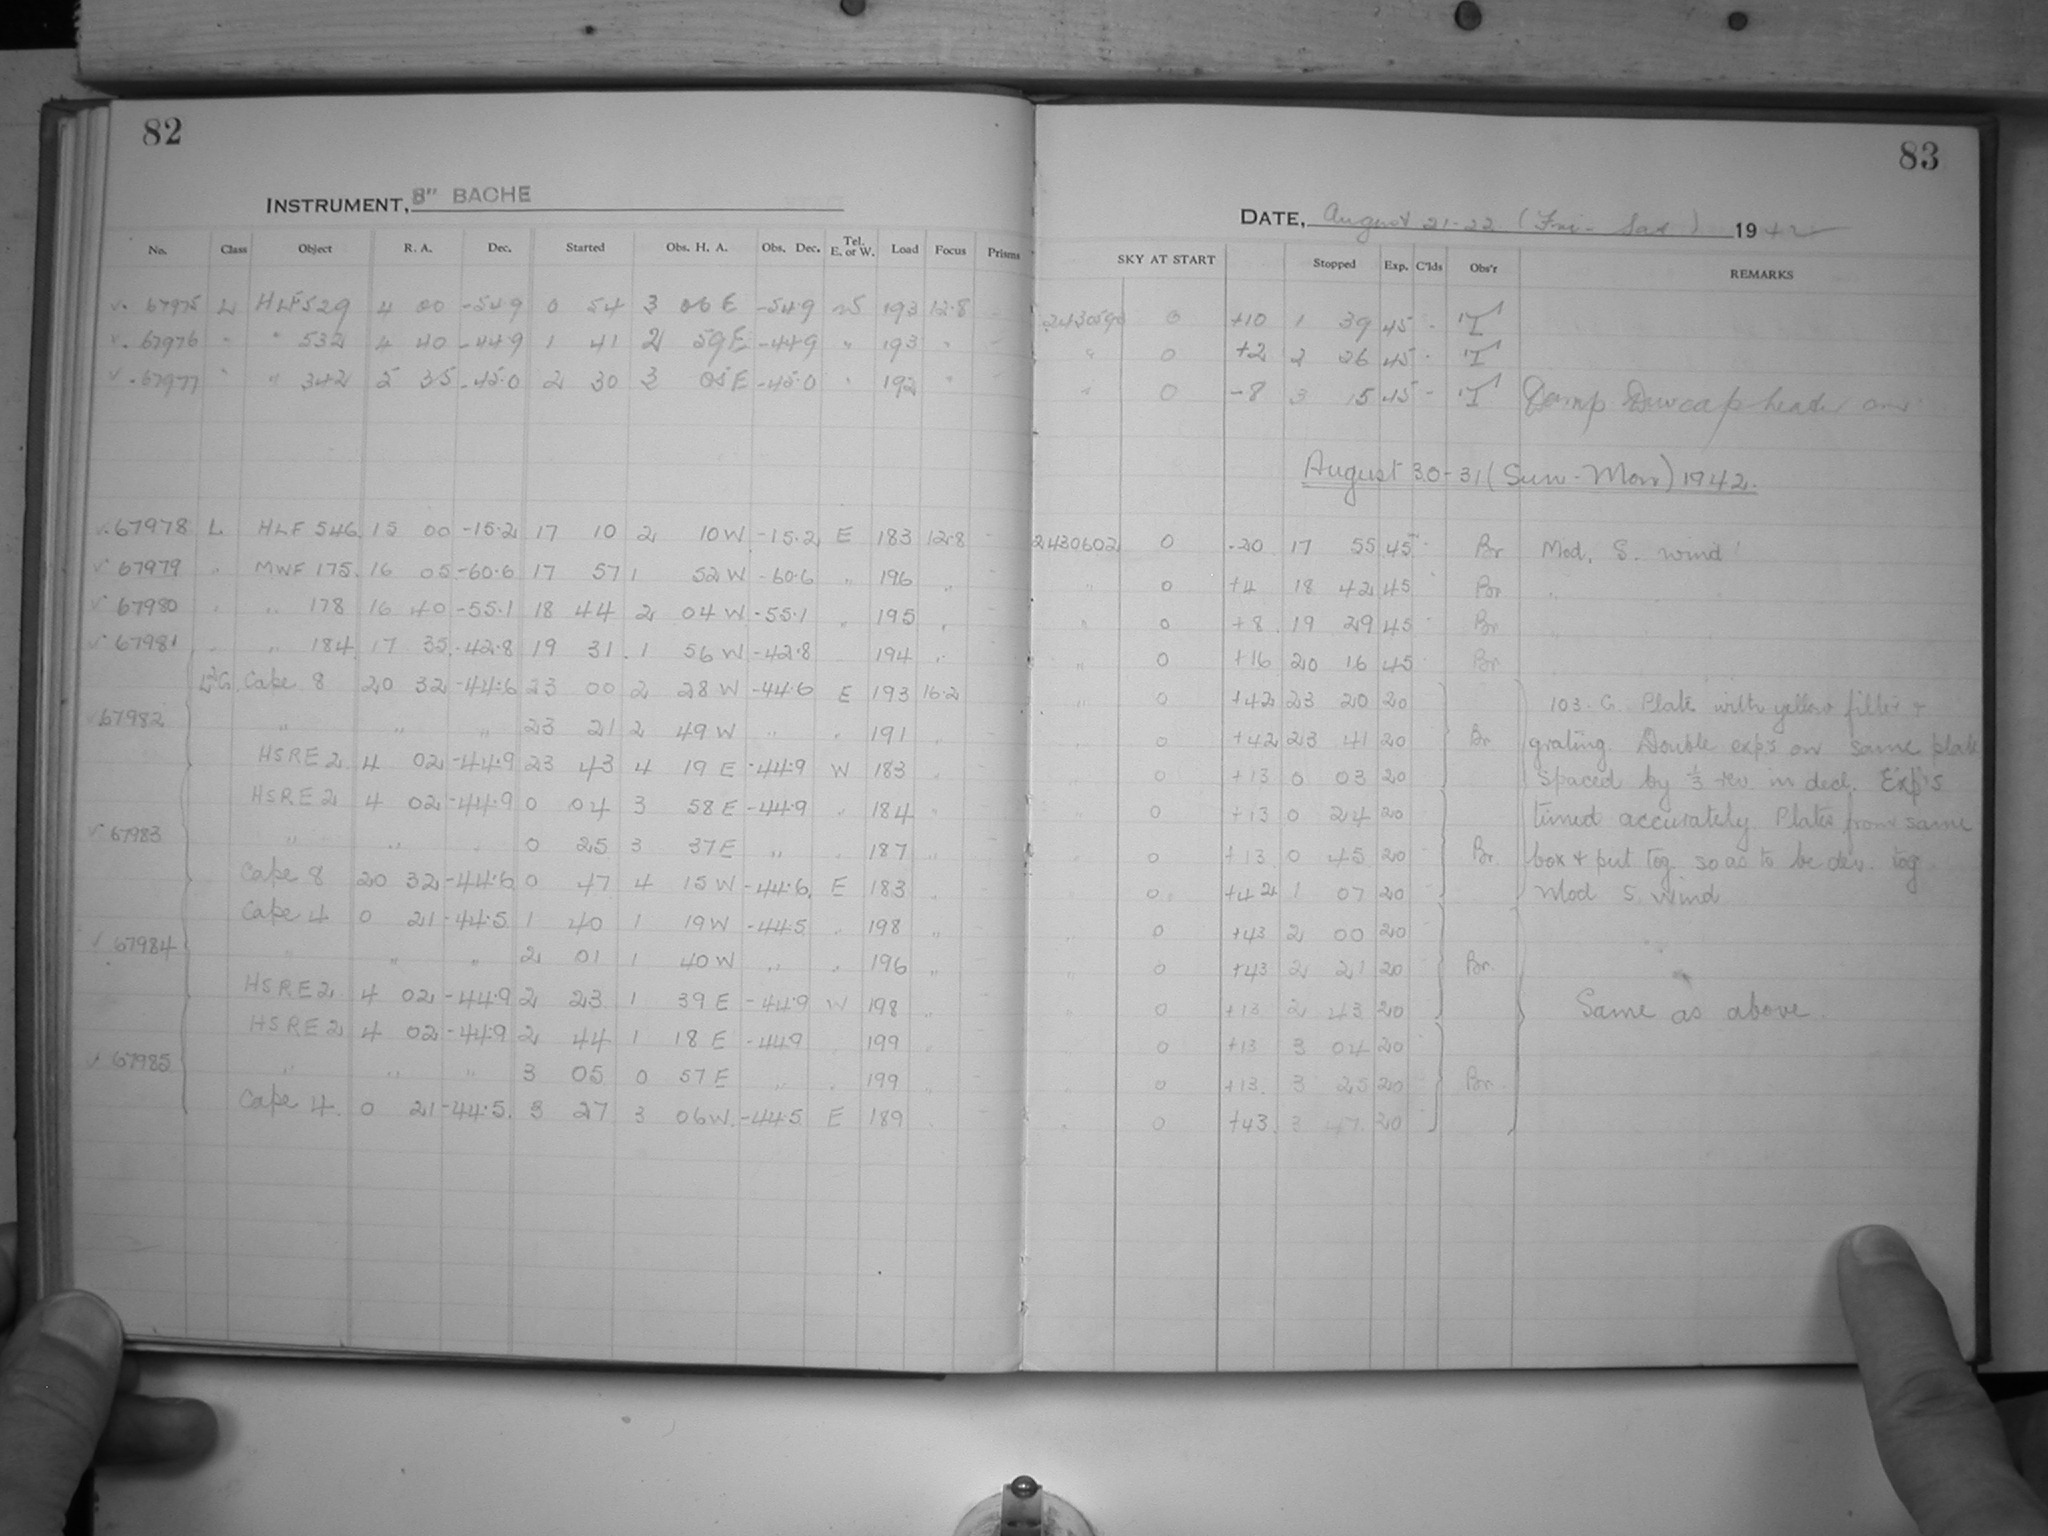 82
INSTRUMENT, 8" BACHE
No. Class Object R. A. Dec. Started Obs. H. A. Obs. Dec. Tel. E. or W. Load Focus Prisms
67975 L HLF 529 4 00 -54.9 0 54 3 06 E -54.9 W 193 12.8
67976 " " 532 4 40 -44.9 1 41 2 59 E -44.9 " 193 "
67977 " " 342 5 35 -45.0 2 30 3 05 E -45.0 " 192 "
67978 L HLF 546 15 00 -15.2 17 10 2 10 W -15.2 E 183 12.8
67979 " MWF 175 16 05 -60.6 17 57 1 52 W -60.6 " 196 "
67980 " " 178 16 40 -55.1 18 44 2 04 W -55.1 " 195 "
67981 " " 184 17 35 -42.8 19 31 1 56 W -42.8 194 "
Cape 8 20 32 -44.6 23 00 2 28 W -44.6 E 193 16.2
67982 " " " 23 21 2 49 W " " 191 "
HSRE 2 4 02 -44.9 23 43 4 19 E -44.9 W 183 "
HSRE 2 4 02 -44.9 0 04 3 58 E -44.9 " 184 "
67983 " " " 0 25 3 37 E " " 187 "
Cape 8 20 32 -44.6 0 47 4 15 W -44.6 E 183 "
Cape 4 0 21 -44.5 1 40 1 19 W -44.5 " 198 "
67984 " " " 2 01 1 40 W " " 196 "
HSRE 2 4 02 -44.9 2 23 1 39 E -44.9 W 198 "
HSRE 2 4 02 -44.9 2 44 1 18 E -44.9 199 "
67985 " " " 3 05 0 57 E " " 199 "
Cape 4 0 21 -44.5 3 27 3 06 W -44.5 E 189
83
DATE, August 21-22 (Fri - Sat) 1942
SKY AT START Stopped Exp. C'lds Obs'r REMARKS
2430590 0 +10 1 39 45 - T
" 0 +2 2 26 45 - T
" 0 -8 3 15 45 - T Damp Dewcap heater on
August 30-31 (Sun-Mon) 1942.
2430602 0 -20 17 55 45 Br Mod. S. wind
" 0 +4 18 42 45 Br "
" 0 +8 19 29 45 Br "
" 0 +16 20 16 45 Br "
" 0 +42 23 20 20 103-G Plate with yellow filter +
" 0 +42 23 41 20 Br grating. Double exp's on same plate
0 +13 0 03 20 spaced by 1/3 rev. in decl. Exp's
" 0 +13 0 24 20 timed accurately. Plates from same
" 0 +13 0 45 20 Br box + put tog. so as to be dev. tog
" 0 +42 1 07 20 Mod S. wind
" 0 +43 2 00 20 "
" 0 +43 2 21 20 Br.
" 0 +13 2 43 20 Same as above.
" 0 +13 3 04 20
" 0 +13 3 25 20 Br.
" 0 +43 3 47 20